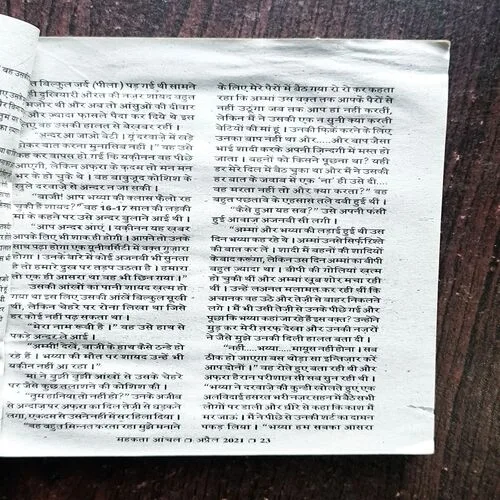 त बिल्कुल जर्द (पीला) पड़ गई थी सामने
ी दुखियारी औरत की नजर शायद बहुत
मजोर थी और अब तो आंसुओं की दीवार
और ज्यादा फासले पैदा कर दिये थे इस
लिए वह उसकी हालत से बेखबर रही।
"अन्दर आ जाओ बेटी। यूं दरवाजे में खड़े
होकर बात करना मुनासिब नहीं।" वह उसे
कह कर वापस हो गई कि यकीनन वह पीछे
आएगी, लेकिन अफरा के कदम तो मन मन
भर के हो चुके थे। वह बावुजूद कोशिश के
खुले दरवाजे से अन्दर न जा सकी।
"बाजी! आप भय्या की क्लास फैलो रह
चुकी हैं शायद?" वह 16-17 साल की लड़की
मां के कहने पर उसे अन्दर बुलाने आई थी।
"आप अन्दर आएं। यकीनन यह खबर
आपके लिए भी शाक ही होगी। आपने तो उनके
साथ पढ़ा होगा एक यूनीवर्सिटी में वक्त गुजारा
होगा। उनके बारे में कोई अजनबी भी सुनता
है तो हमारे दुख पर तड़प उठता है। हमारा
तो एक ही आसरा था वह भी छिन गया।"
उसकी आंखों का पानी शायद खत्म हो
गया था इस लिए उसकी आंखें बिल्कुल सूखी
थीं, लेकिन चेहरे पर रोना लिखा था जिसे
हर कोई नहीं पढ़ सकता था।
"मेरा नाम रूबी है।" वह उसे हाथ से
पकड़े अन्दर ले आई।
"अम्मी! देखें, बाजी के हाथ कैसे ठन्डे हो
रहे हैं। भय्या की मौत पर शायद उन्हें भी
यकीन नहीं आ रहा।"
मां ने बुझी बुझी आंखों से उसके चेहरे
पर जैसे कुछ तलाशने की कोशिश की।
"तुम हानिया तो नहीं हो?" उनके अजीब
से अन्दाज पर अफरा का दिल तेजी से धड़कने
लगा, एकदम से उसने नहीं में सर हिला दिया।
"वह बहुत मिन्नत करता रहा मुझे मनाने
के लिए मेरे पैरों में बैठ गया रो रो कर कहता
रहा कि अम्मां उस वक्त तक आपके पैरों से
नहीं उठूंगा जब तक आप हां नहीं करतीं,
लेकिन मैं ने उसकी एक न सुनी क्या करती
बेटियों की मां हूं। उनकी फिक्र करने के लिए
उनका बाप नहीं था और....और बाप जैसा
भाई शादी करके अपनी जिन्दगी में मस्त हो
जाता। बहनों को किसने पूछना था? यही
डर मेरे दिल में बैठ चुका था और मैं ने उसकी
हर बात के जवाब में एक 'ना' ही उसे दी....
वह मरता नहीं तो और क्या करता?" वह
बहुत पछतावे के एहसास तले दबी हुई थी।
"कैसे हुआ यह सब?" उसे अपनी फंसी
हुई आवाज अजनबी सी लगी।
"अम्मां और भय्या की लड़ाई हुई थी उस
दिन भय्या कह रहे थे। अम्मां उनसे सिर्फ रिश्ते
की बात कर लें। शादी मैं बहनों की शादियों
के बाद करूंगा, लेकिन उस दिन अम्मां का बीपी
बहुत ज्यादा था। बीपी की गोलियां खत्म
हो चुकी थीं और अम्मां खूब शोर मचा रही
थीं। उन्हें लअनत मलामत कर रही थीं कि
अचानक वह उठे और तेजी से बाहर निकलने
लगे। मैं भी उसी तेजी से उनके पीछे गई और
पूछा कि भय्या कहां जा रहे हैं इस वक्त? उन्होंने
मुड़ कर मेरी तरफ देखा और उनकी नजरों
ने जैसे मुझे उनकी दिली हालत बता दी।
"नहीं....भय्या....मायूस नहीं होना। सब
ठीक हो जाएगा बस थोड़ा सा इन्तिजार करें
आप दोनों।" वह रोते हुए बता रही थी और
अफरा हैरान परीशान सी सब सुन रही थी।
"भय्या ने दरवाजे की कुन्डी खोलते हुए एक
अलविदाई हसरत भरी नजर सहन में बैठे सभी
लोगों पर डाली और धीरे से कहा कि काश मैं
मर जाऊं। मैं ने पीछे से उनकी शर्ट का दामन
पकड़ लिया। "भय्या हम सबका आसरा
महकता आंचल अप्रैल 2021 23